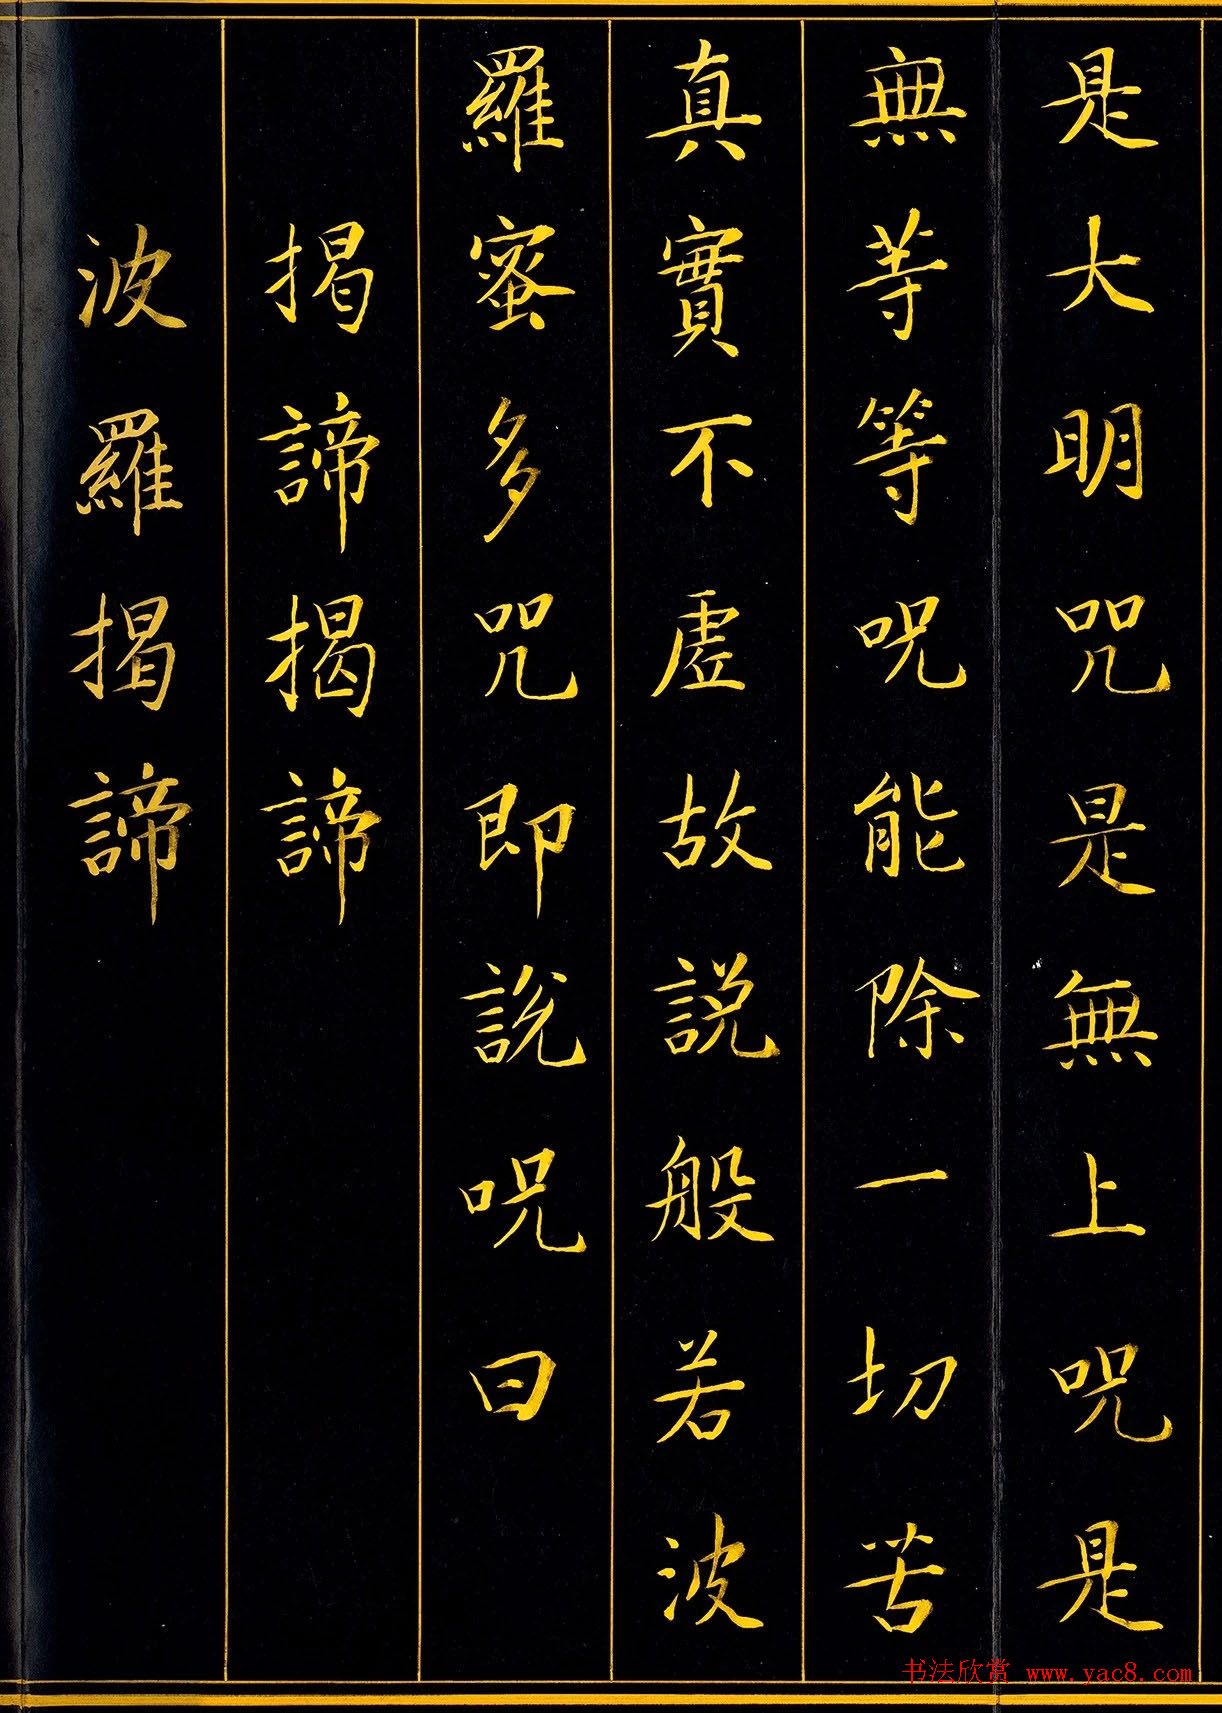 是大明咒是無上呪是
無等等呪能除一切苦
真實不虛故説般若波
羅蜜多咒即說呪曰
揭諦揭諦
波羅揭諦
书法欣赏 www.yac8.com